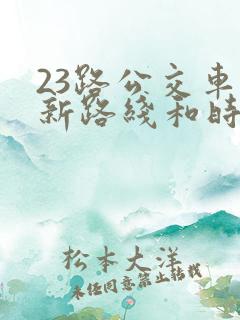 23路公交车
新路线和时
松本大洋
未经同意禁止转载